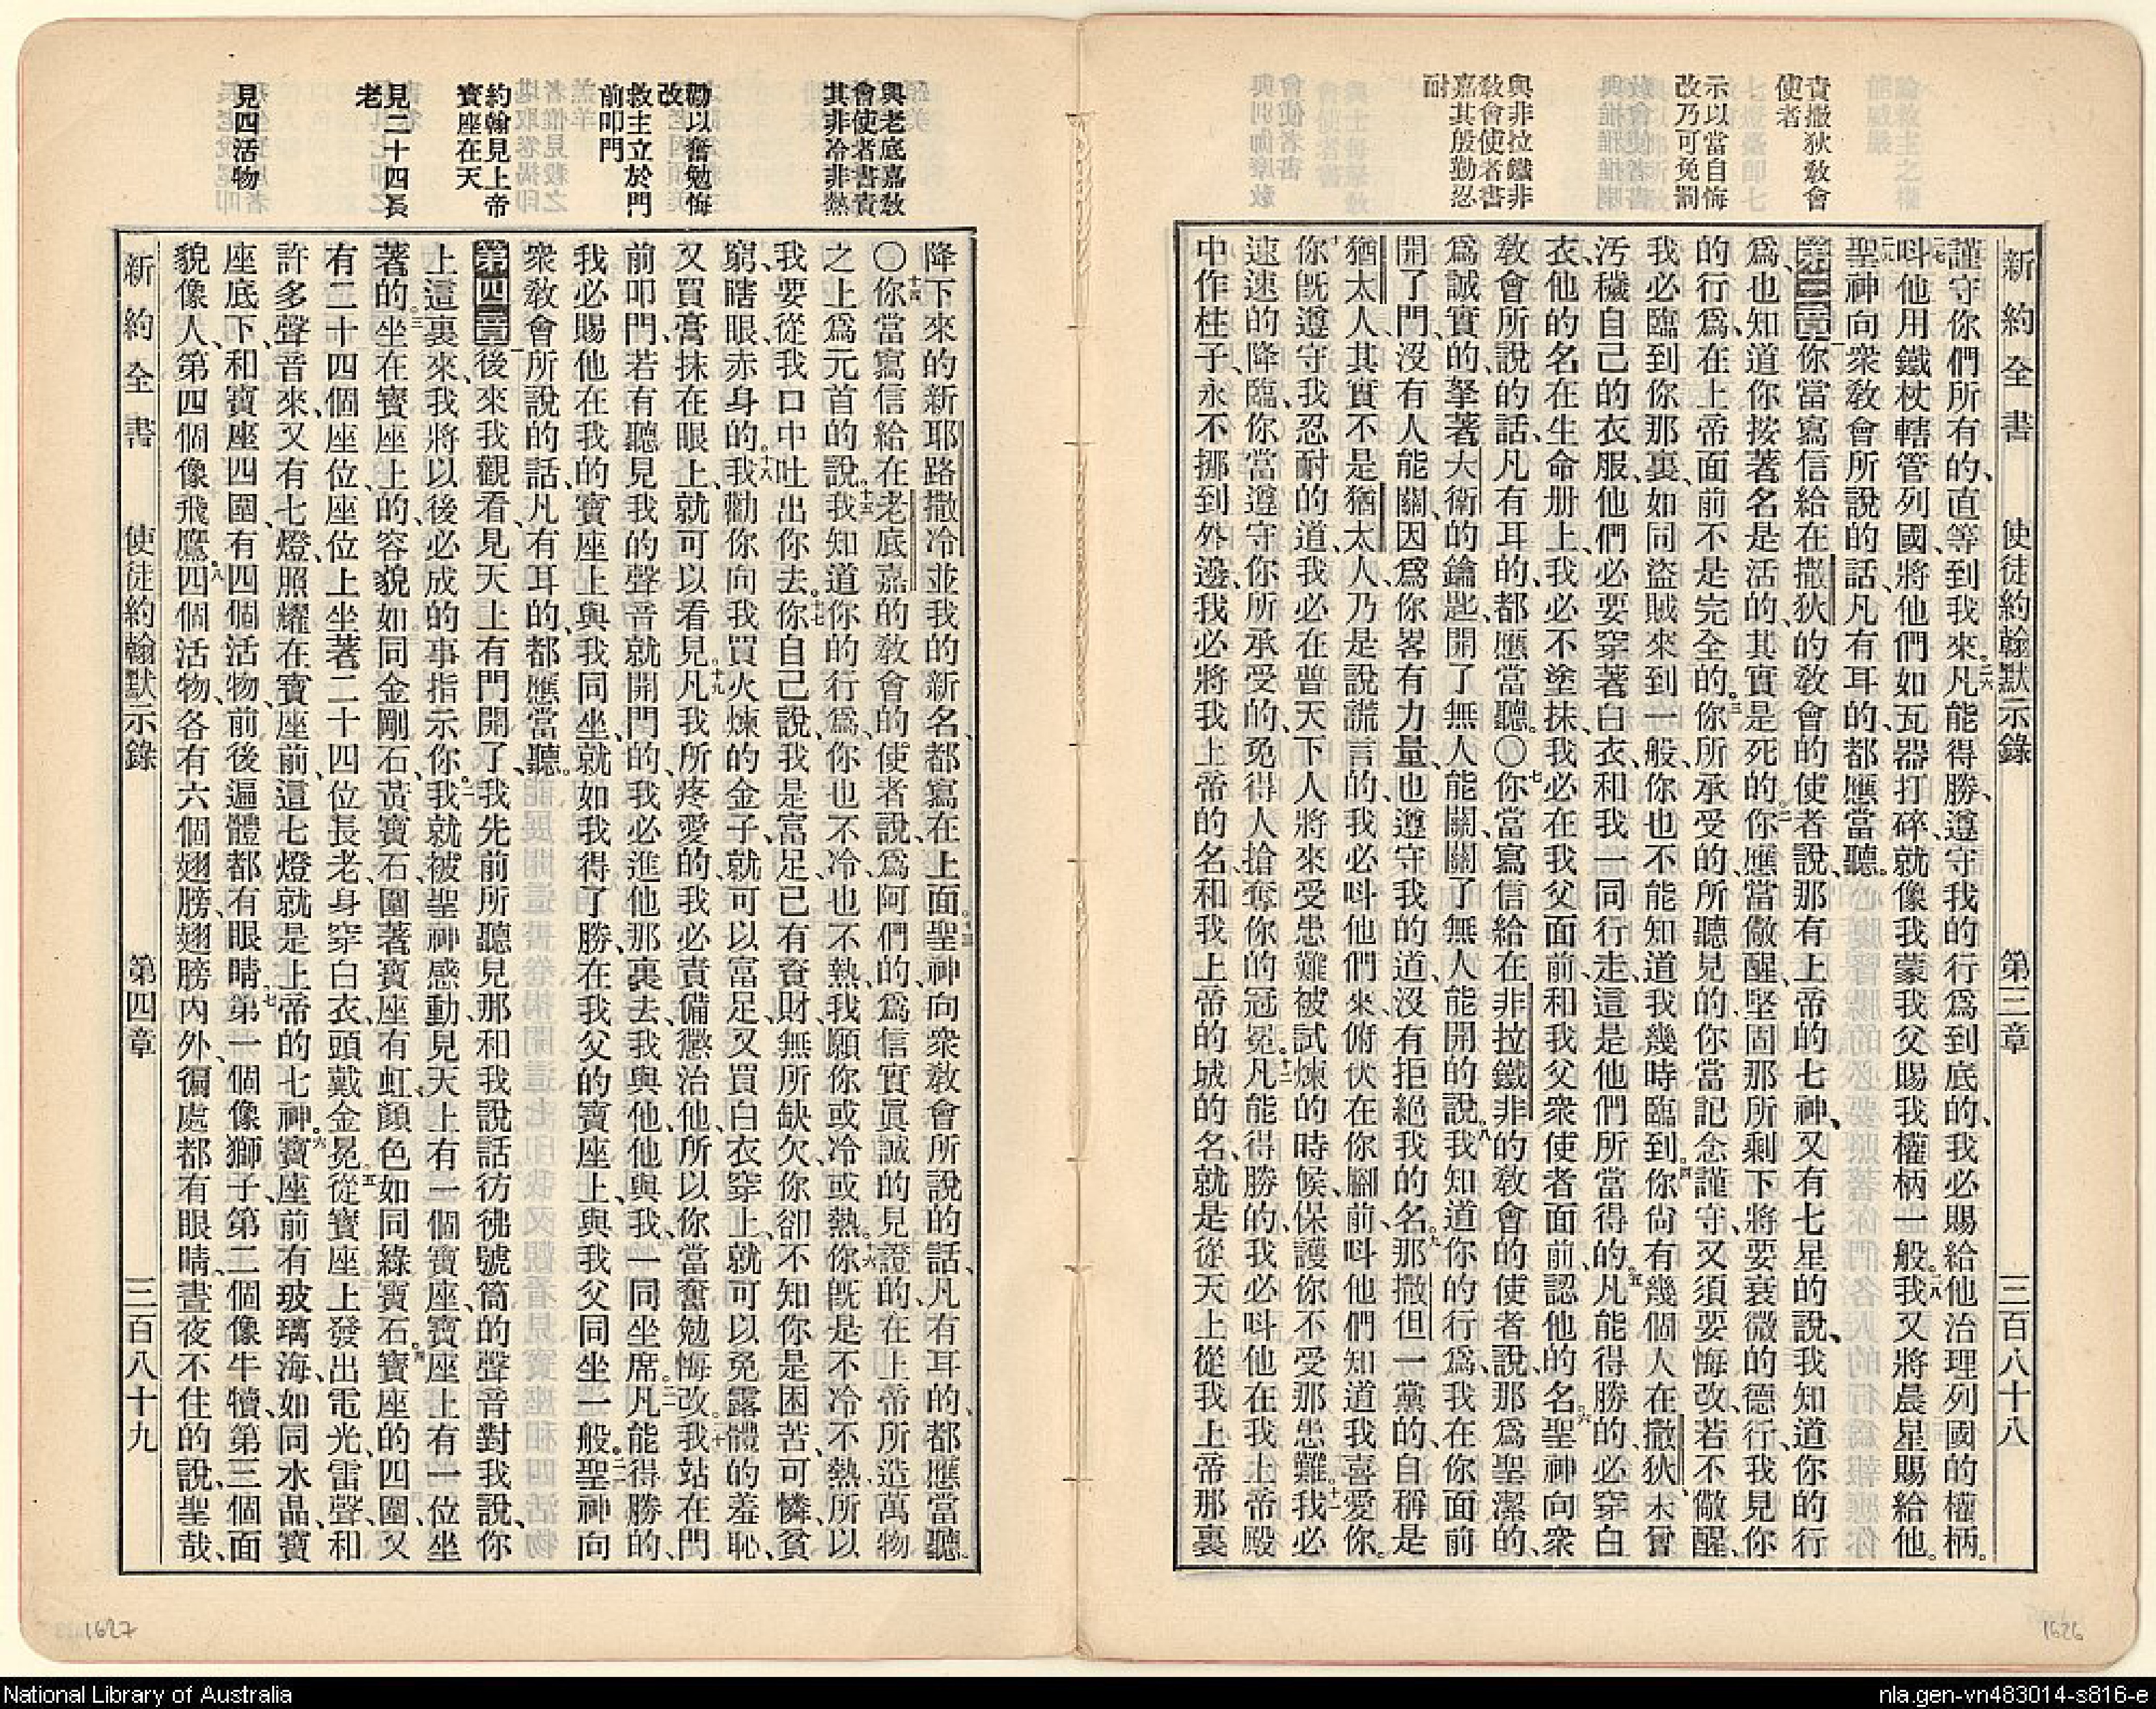 新約全書　使徒約翰默示錄　第三章　三百八十八
責撒狄敎會
使者
示以當自悔
改乃可免罰
與非拉鐵非
敎會使者書
嘉其殷勤忍
耐
謹守你們所有的、直等到我來。二六凡能得勝、遵守我的行爲到底的、我必賜給他治理列國的權柄。
二七呌他用鐵杖轄管列國、將他們如瓦器打碎、就像我蒙我父賜我權柄一般。二八我又將晨星賜給他。
二九聖神向衆敎會所說的話、凡有耳的、都應當聽。
第三章一你當寫信給在撒狄的敎會的使者說、那有上帝的七神、又有七星的說、我知道你的行
爲、也知道你按著名是活的、其實是死的。二你應當儆醒、堅固那所剩下將要衰微的德行、我見你
的行爲、在上帝面前不是完全的。三你所承受的、所聽見的、你當記念謹守、又須要悔改、若不儆醒、
我必臨到你那裏、如同盜賊來到一般、你也不能知道我幾時臨到。四你尙有幾個人在撒狄、未曾
汚穢自己的衣服、他們必要穿著白衣、和我一同行走、這是他們所當得的。五凡能得勝的、必穿白
衣、他的名在生命册上、我必不塗抹、我必在我父面前、和我父衆使者面前、認他的名。六聖神向衆
敎會所說的話、凡有耳的、都應當聽。〇七你當寫信給在非拉鐵非的敎會的使者說、那爲聖潔的、
爲誠實的、拏著大衛的鑰匙、開了無人能關、關了無人能開的說。八我知道你的行爲、我在你面前
開了門、沒有人能關、因爲你畧有力量、也遵守我的道、沒有拒絕我的名。九那撒但一黨的、自稱是
猶太人、其實不是猶太人、乃是說謊言的、我必呌他們來、俯伏在你腳前、呌他們知道我喜愛你。
十你旣遵守我忍耐的道、我必在普天下人將來受患難被試煉的時候、保護你不受那患難。十一我必
速速的降臨、你當遵守你所承受的、免得人搶奪你的冠冕。十二凡能得勝的、我必呌他在我上帝殿
中作柱子、永不挪到外邊、我必將我上帝的名、和我上帝的城的名、就是從天上從我上帝那裏
與老底嘉敎
會使者書責
其非冷非熱
勸以奮勉悔
改
救主立於門
前叩門
約翰見上帝
寶座在天
見二十四長
老
見四活物
降下來的新耶路撒冷、並我的新名、都寫在上面。十三聖神向衆敎會所說的話、凡有耳的、都應當聽。
〇十四你當寫信給在老底嘉的敎會的使者說、爲阿們的、爲信實眞誠的見證的、在上帝所造萬物
之上爲元首的說。十五我知道你的行爲、你也不冷、也不熱、我願你或冷或熱。十六你旣是不冷不熱、所以
我要從我口中吐出你去。十七你自己說、我是富足、已有資財、無所缺欠、你卻不知你是困苦、可憐、貧
窮、瞎眼、赤身的。十八我勸你向我買火煉的金子、就可以富足、又買白衣穿上、就可以免露體的羞恥、
又買膏抹在眼上、就可以看見。十九凡我所疼愛的、我必責備懲治他、所以你當奮勉悔改。二十我站在門
前叩門、若有聽見我的聲音就開門的、我必進他那裏去、我與他、他與我、一同坐席。二一凡能得勝的、
我必賜他在我的寶座上與我同坐、就如我得了勝、在我父的寶座上、與我父同坐一般。二二聖神向
衆敎會所說的話、凡有耳的、都應當聽。
第四章一後來我觀看、見天上有門開了、我先前所聽見那和我說話彷彿號筒的聲音對我說、你
上這裏來、我將以後必成的事指示你。二我就被聖神感動、見天上有一個寶座、寶座上有一位坐
著的。三坐在寶座上的、容貌如同金剛石、黃寶石、圍著寶座有虹、顏色如同綠寶石。四寶座的四圍、又
有二十四個座位、座位上坐著二十四位長老、身穿白衣、頭戴金冕。五從寶座上發出電光、雷聲、和
許多聲音來、又有七燈、照耀在寶座前、這七燈就是上帝的七神。六寶座前有玻璃海、如同水晶、寶
座底下、和寶座四圍、有四個活物、前後遍體都有眼睛。七第一個像獅子、第二個像牛犢、第三個面
貌像人、第四個像飛鷹。八四個活物、各有六個翅膀、翅膀內外徧處都有眼睛、晝夜不住的說、聖哉、
新約全書　使徒約翰默示錄　第四章　三百八十九
1627
1626
National Library of Australia
nla.gen-vn483014-s816-e